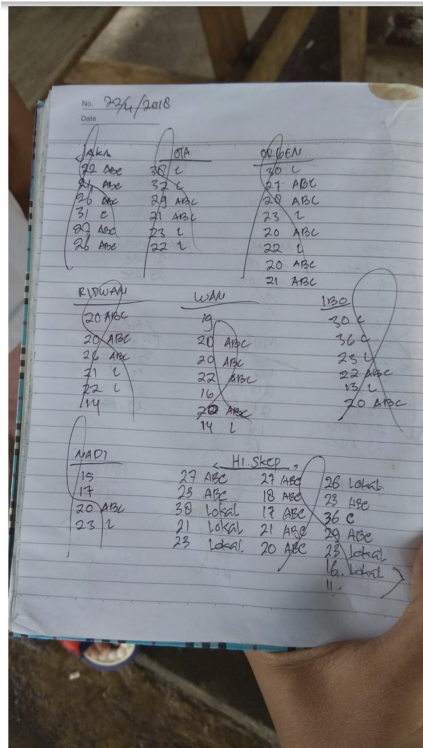 No. 22/4/2018
Date
JAKA
22 ABC
21 ABC
26 ABC
31 C
27 ABC
26 ABC
OTA
38 C
32 C
29 ABC
21 ABC
23 L
22 L
ORGEN
30 L
27 ABC
20 ABC
23 L
20 ABC
22 L
20 ABC
21 ABC
RIDWAN
20 ABC
20 ABC
26 ABC
21 L
22 L
14
WAN
19
20 ABC
20 ABC
22 ABC
16
20 ABC
14 L
IBO
30 C
36 C
23 L
22 ABC
13 L
20 ABC
NADI
15
17
20 ABC
23 L
HI. Skep
27 ABC
25 ABC
38 Lokal
21 Lokal
23 Lokal
27 ABC
18 ABC
17 ABC
21 ABC
20 ABC
26 Lokal
23 ABC
36 C
29 ABC
23 Lokal
16. Lokal
11.